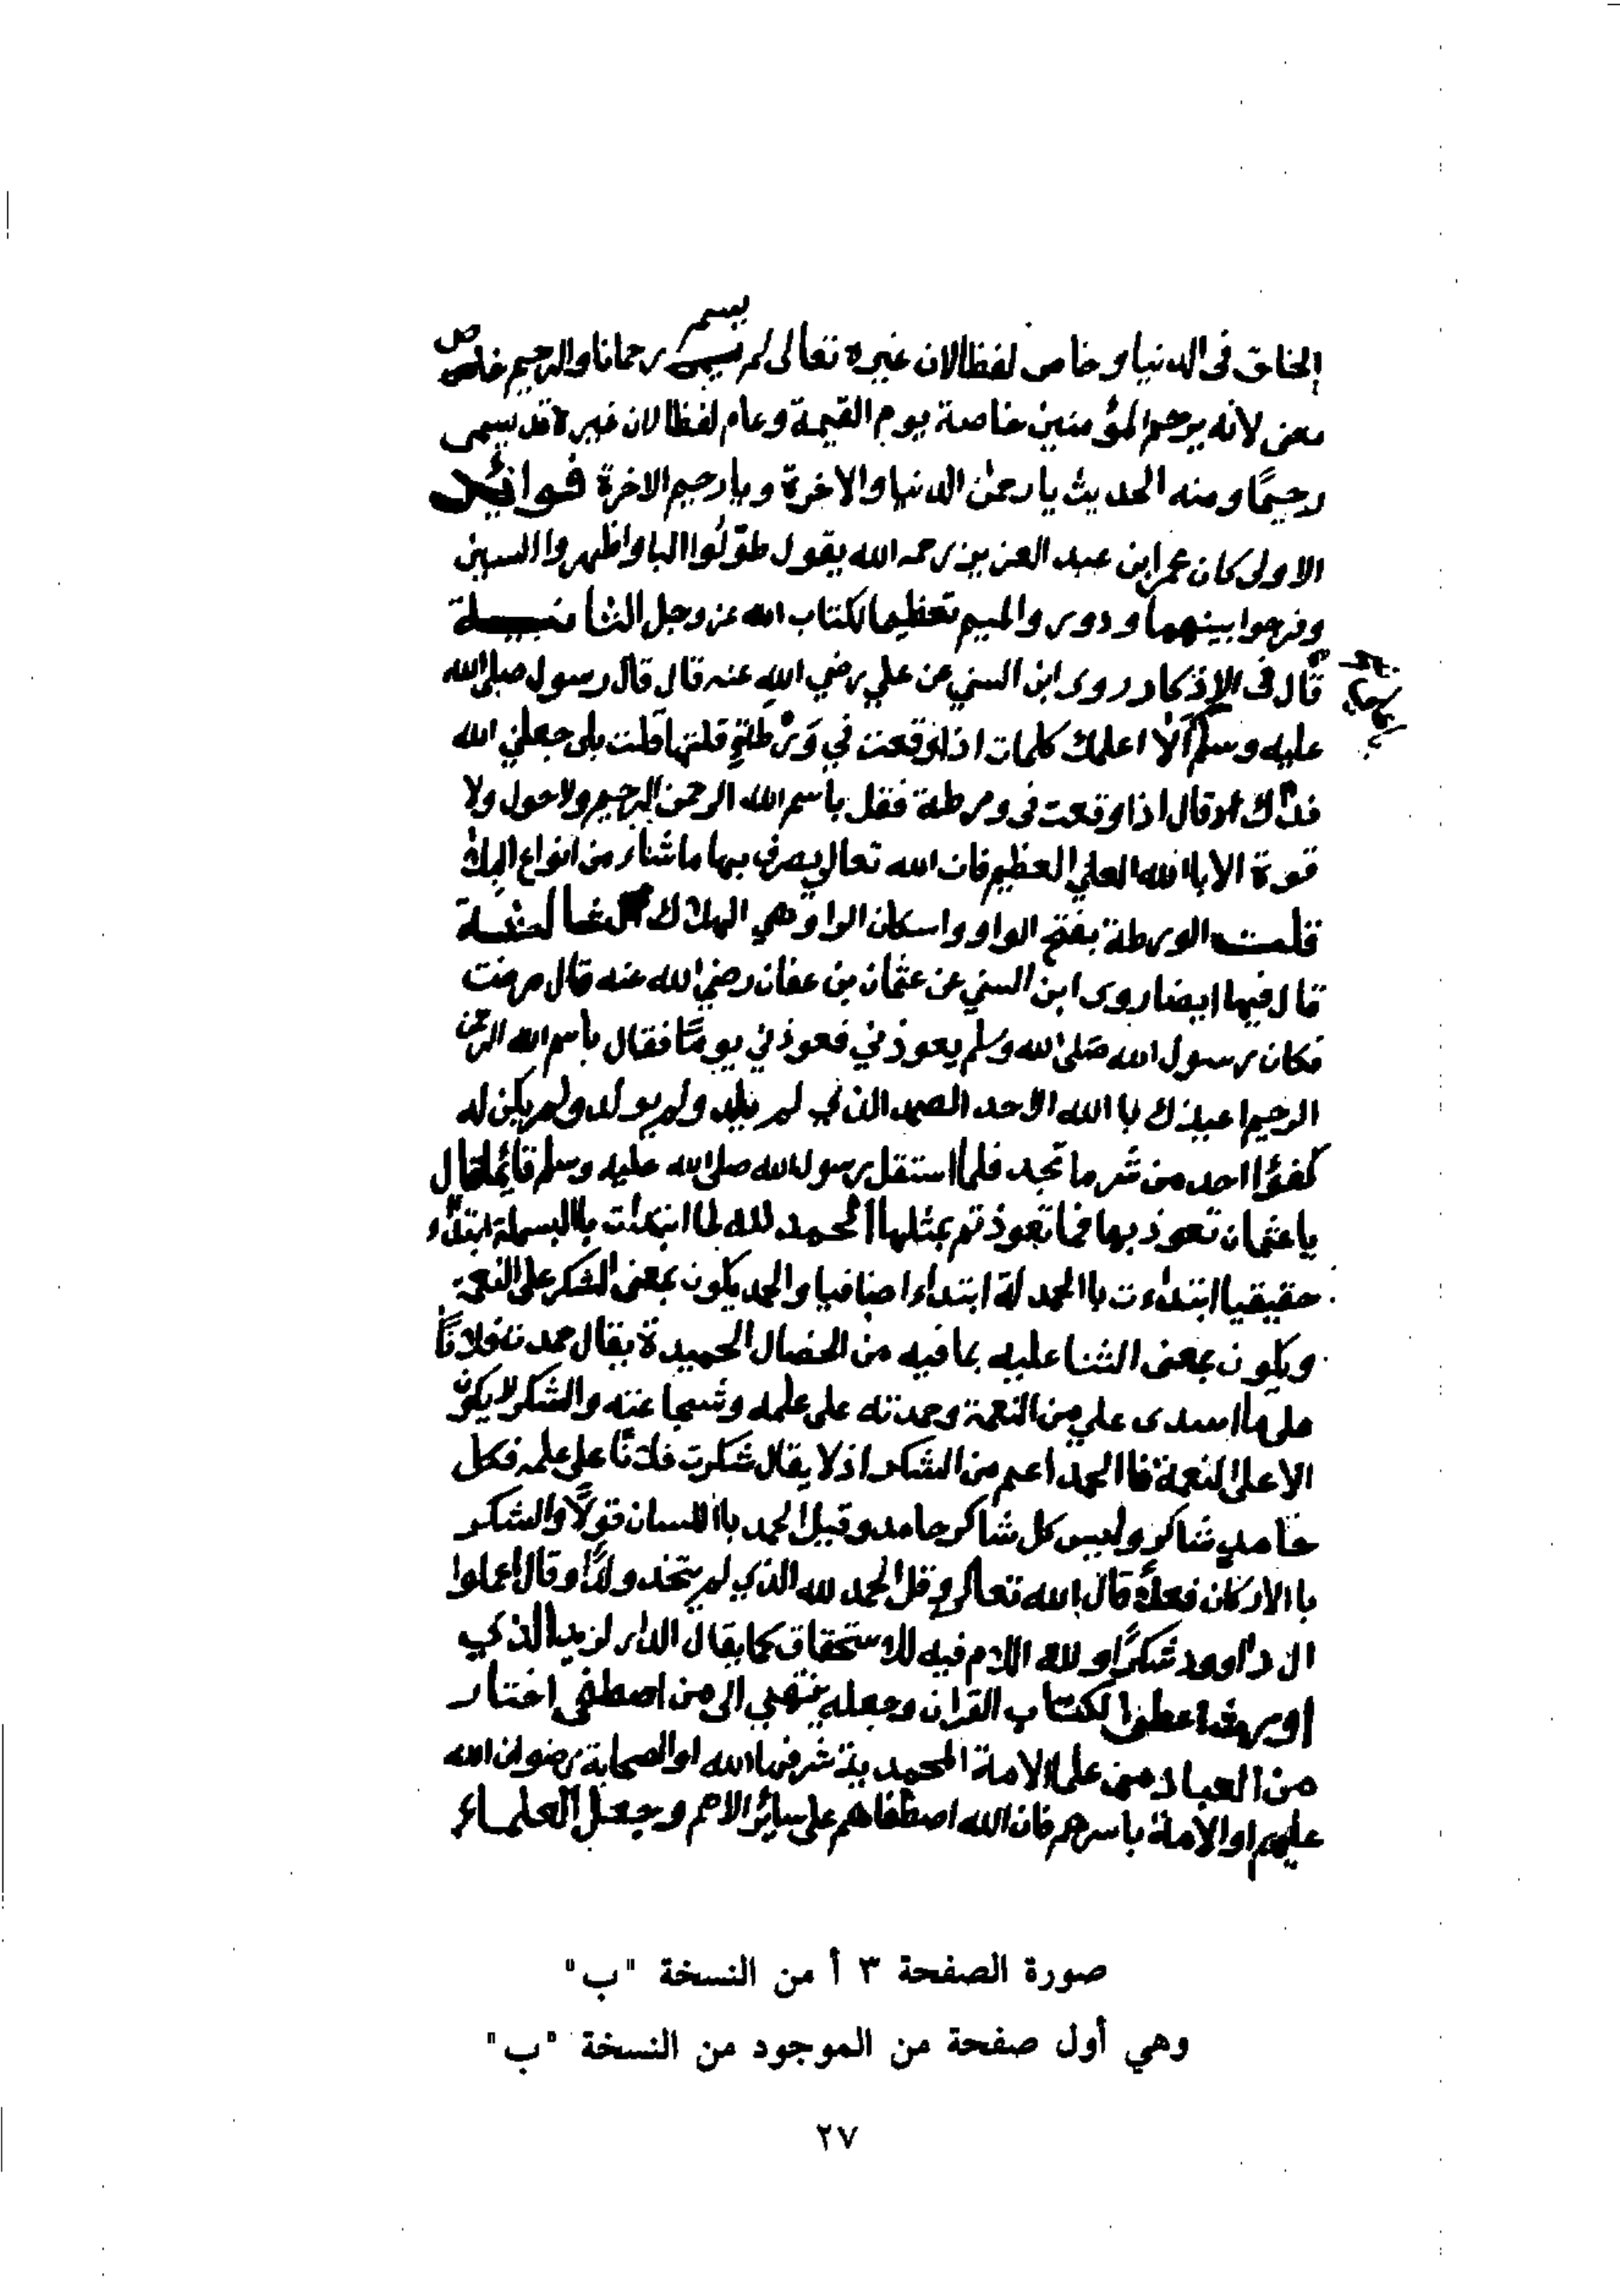 الخلق فى الدنيا وخاص لفظا لان غيره تعالى لم يسم رحمانا والرحيم خاص
معنى لانه يرحم المؤمنين خاصة يوم القيمة وعام لفظا لان غيره قد يسمى
رحيمًا ومنه الحديث يا رحمن الدنيا والاخرة ويا رحيم الاخرة فوائد
الاولى كان عمر ابن عبد العزيز رحمه الله يقول طوّلُوا البا واظهروا السين
وفرجوا بينهما ودوروا الميم تعظيما لكتاب الله عز وجل الثانية
قال فى الاذكار روى ابن السني عن علي رضي الله عنه قال قال رسول صلى الله
عليه وسلم ألا اعلمك كلمات اذا وقعت في وَرْطَةٍ قلتها قلت بلى جعلني الله
فداك قال اذا وقعت فى ورطة فقل باسم الله الرحمن الرحيم ولا حول ولا
قوة الا باالله العلي العظيم فان الله تعالى يصرف بها ما شاء من انواع البلاء
قلت الورطة بفتح الواو واسكان الرا وهي الهلاك الثالثة
قال فيها ايضا روى ابن السني عن عثمان بن عفان رضي الله عنه قال مرضت
فكان رسول الله صَلى الله وسلم يعوذني فعوذني يومًا فقال باسم الله الرحمن
الرحيم اعيذك با الله الاحد الصمد الذي لم يلد ولم يولد ولم يكن له
كفؤا احد من شر ما تجد فلما استقل رسول الله صلى الله عليه وسلم قائما قال
يا عثمان تعوذ بها فما تعوذتم بمثلها الحمد لله لما ابتدات باالبسملة ابتداء
حقيقيا ابتداءت باالحمد لة ابتداءا اضافيا والحمد يكون بمعنى الشكر على النعمة
ويكون بمعنى الثنا عليه بما فيه من الخصال الحميدة يقال حمدت فلانًا
على ما اسدى علي من النعمة وحمدته على علمه وشجاعته والشكر لا يكون
الا على النعمة فاالحمد اعم من الشكر اذ لا يقال شكرت فلانًا على علمه فكل
حامد شاكر وليس كل شاكر حامد وقيل الحمد باللسان قولًا والشكر
باالاركان فعلًا قال الله تعالى وقل الحمد لله الذي لم يتخذ ولدًا وقال اعملوا
ال داوود شكرًا ولله اللام فيه للاستحقاق كما يقال الدار لزيد الذي
اورث اعطى الكتاب القران وجعله ينتهي الى من اصطفى اختار
من العباد من علما الامة المحمدية شرفها الله او الصحابة رضوان الله
عليهم او الامة باسرهم فان الله اصطفاهم على سائر الامم وجعل العلماء
صورة الصفحة ٣ أ من النسخة "ب"
وهي أول صفحة من الموجود من النسخة "ب"
٢٧